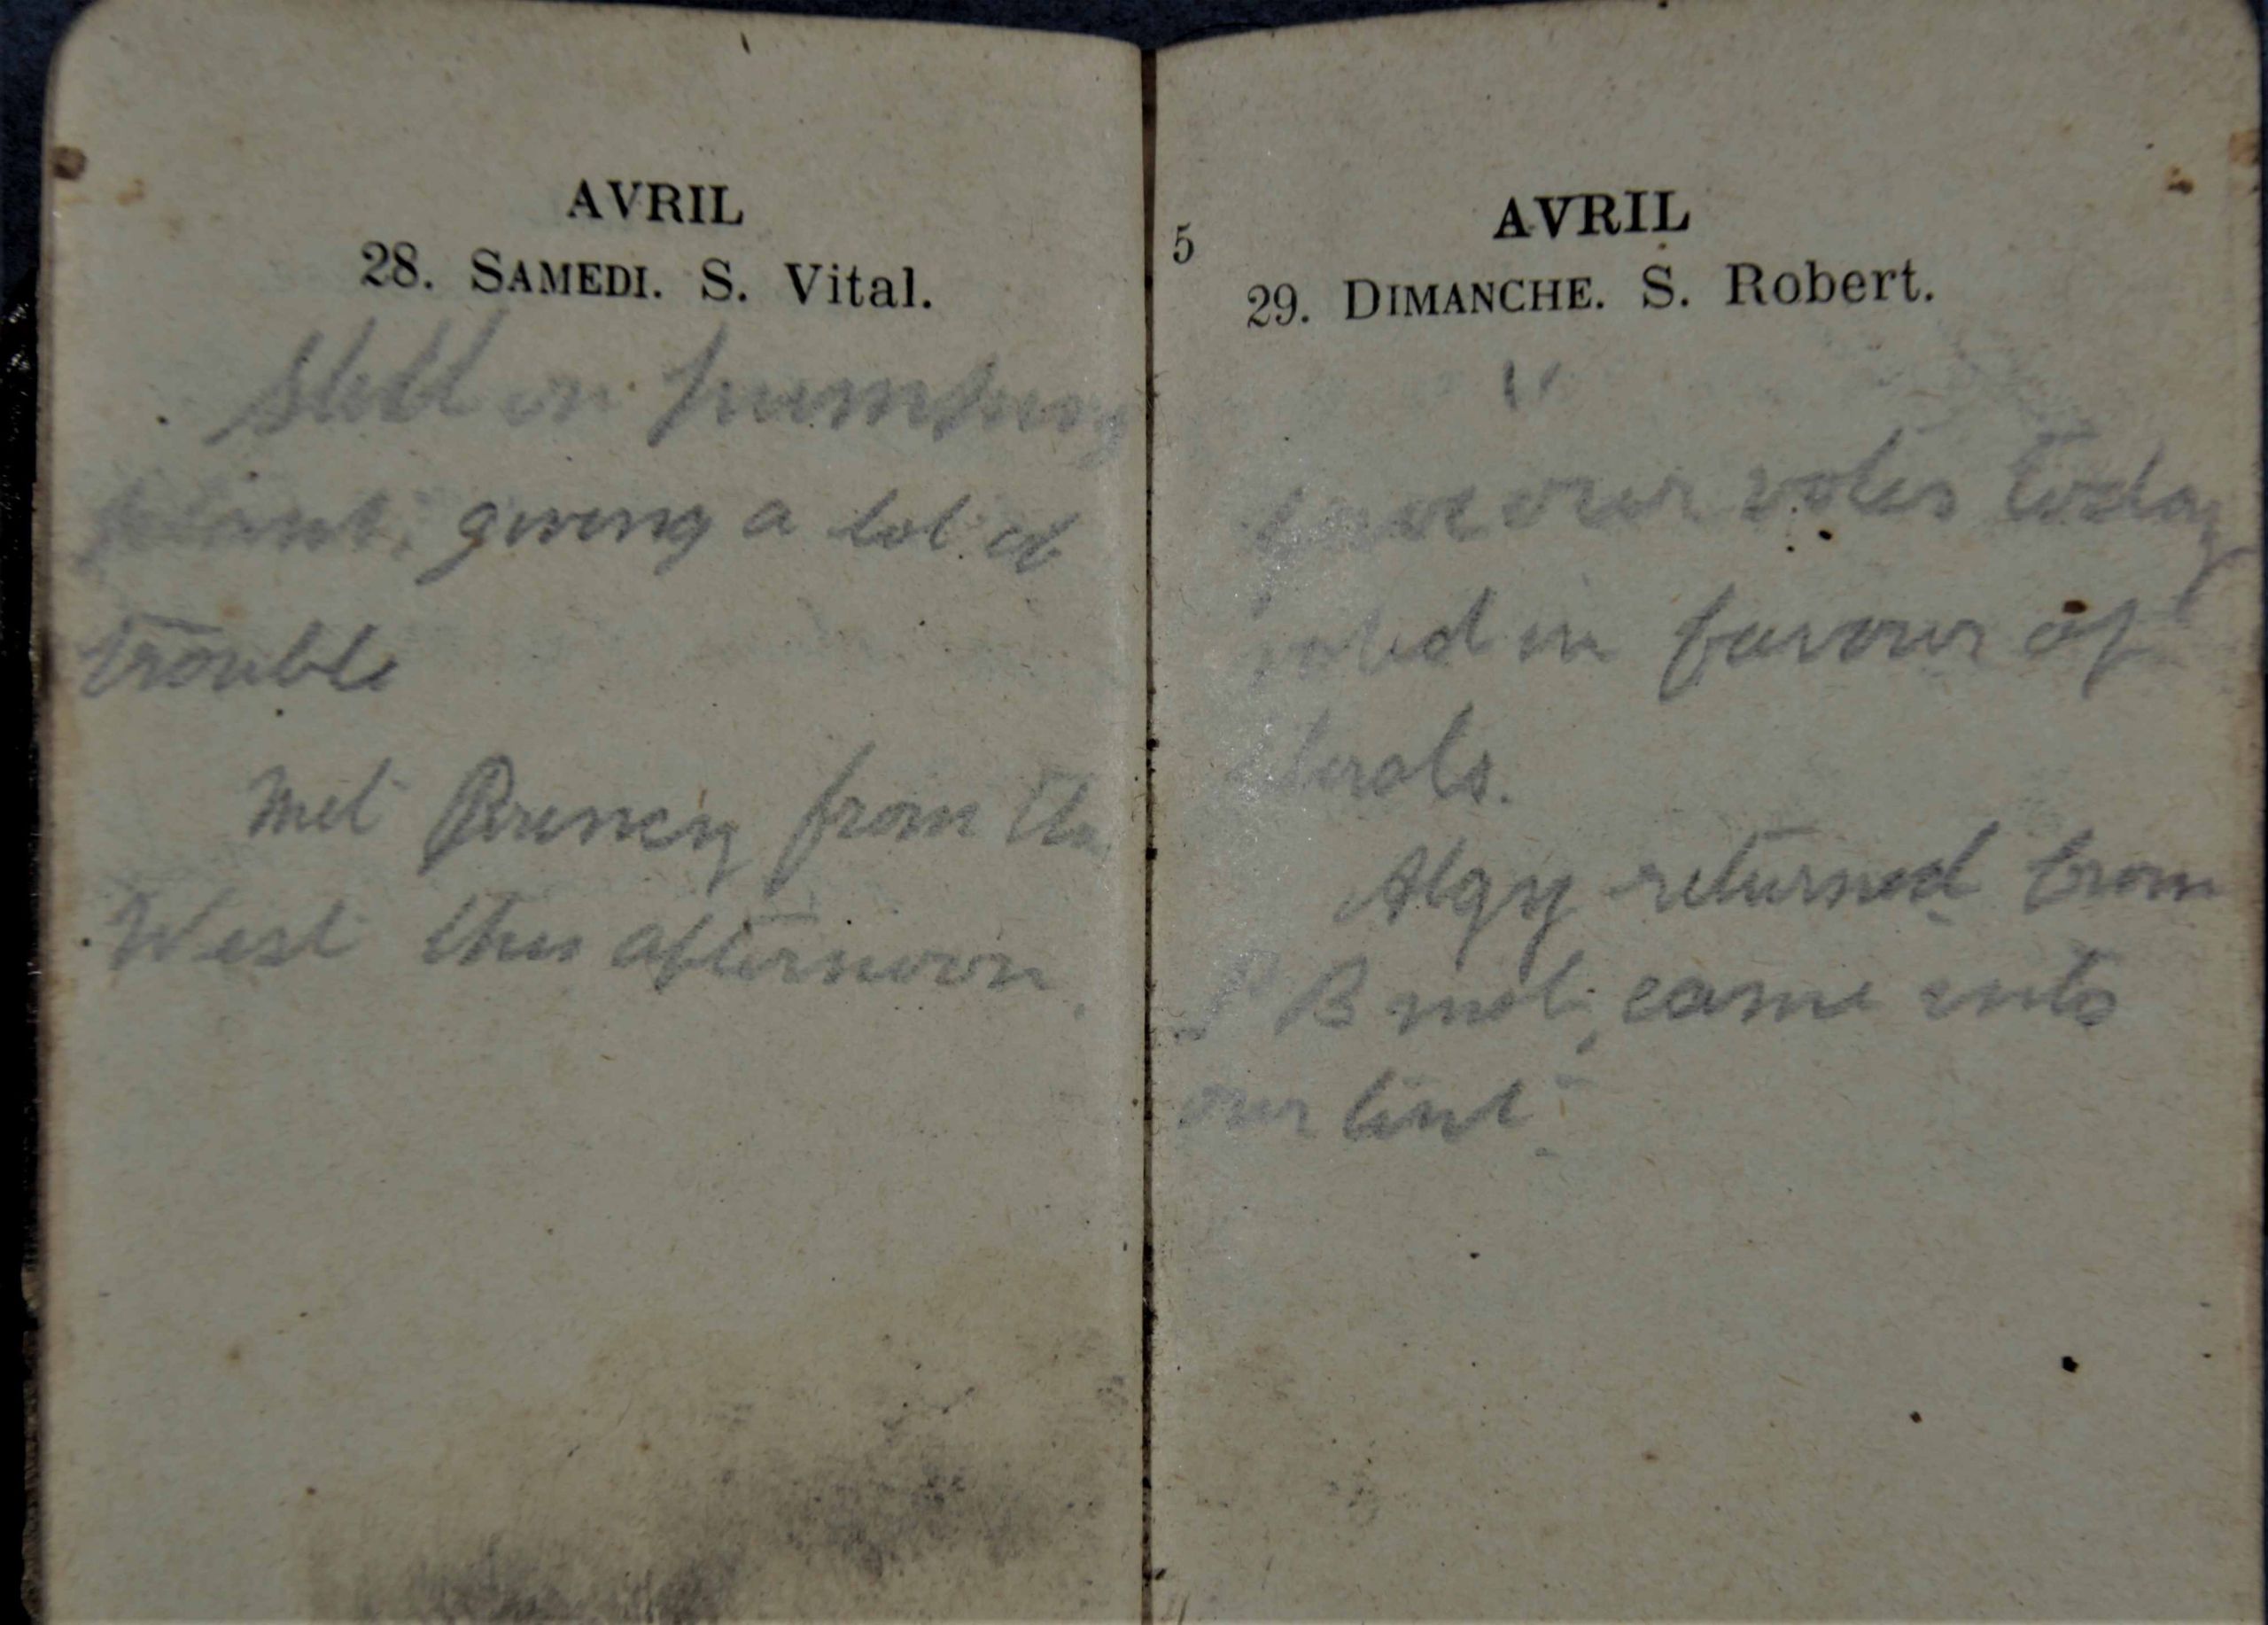 AVRIL
28. SAMEDI. S. Vital.
Still on pumping
plant, giving a lot of
trouble
Met from the
West this afternoon.
5
AVRIL
29. DIMANCHE. S. Robert.
"
gave our votes today
voted in favour of
Algy returned from
B mob, came into
our tent